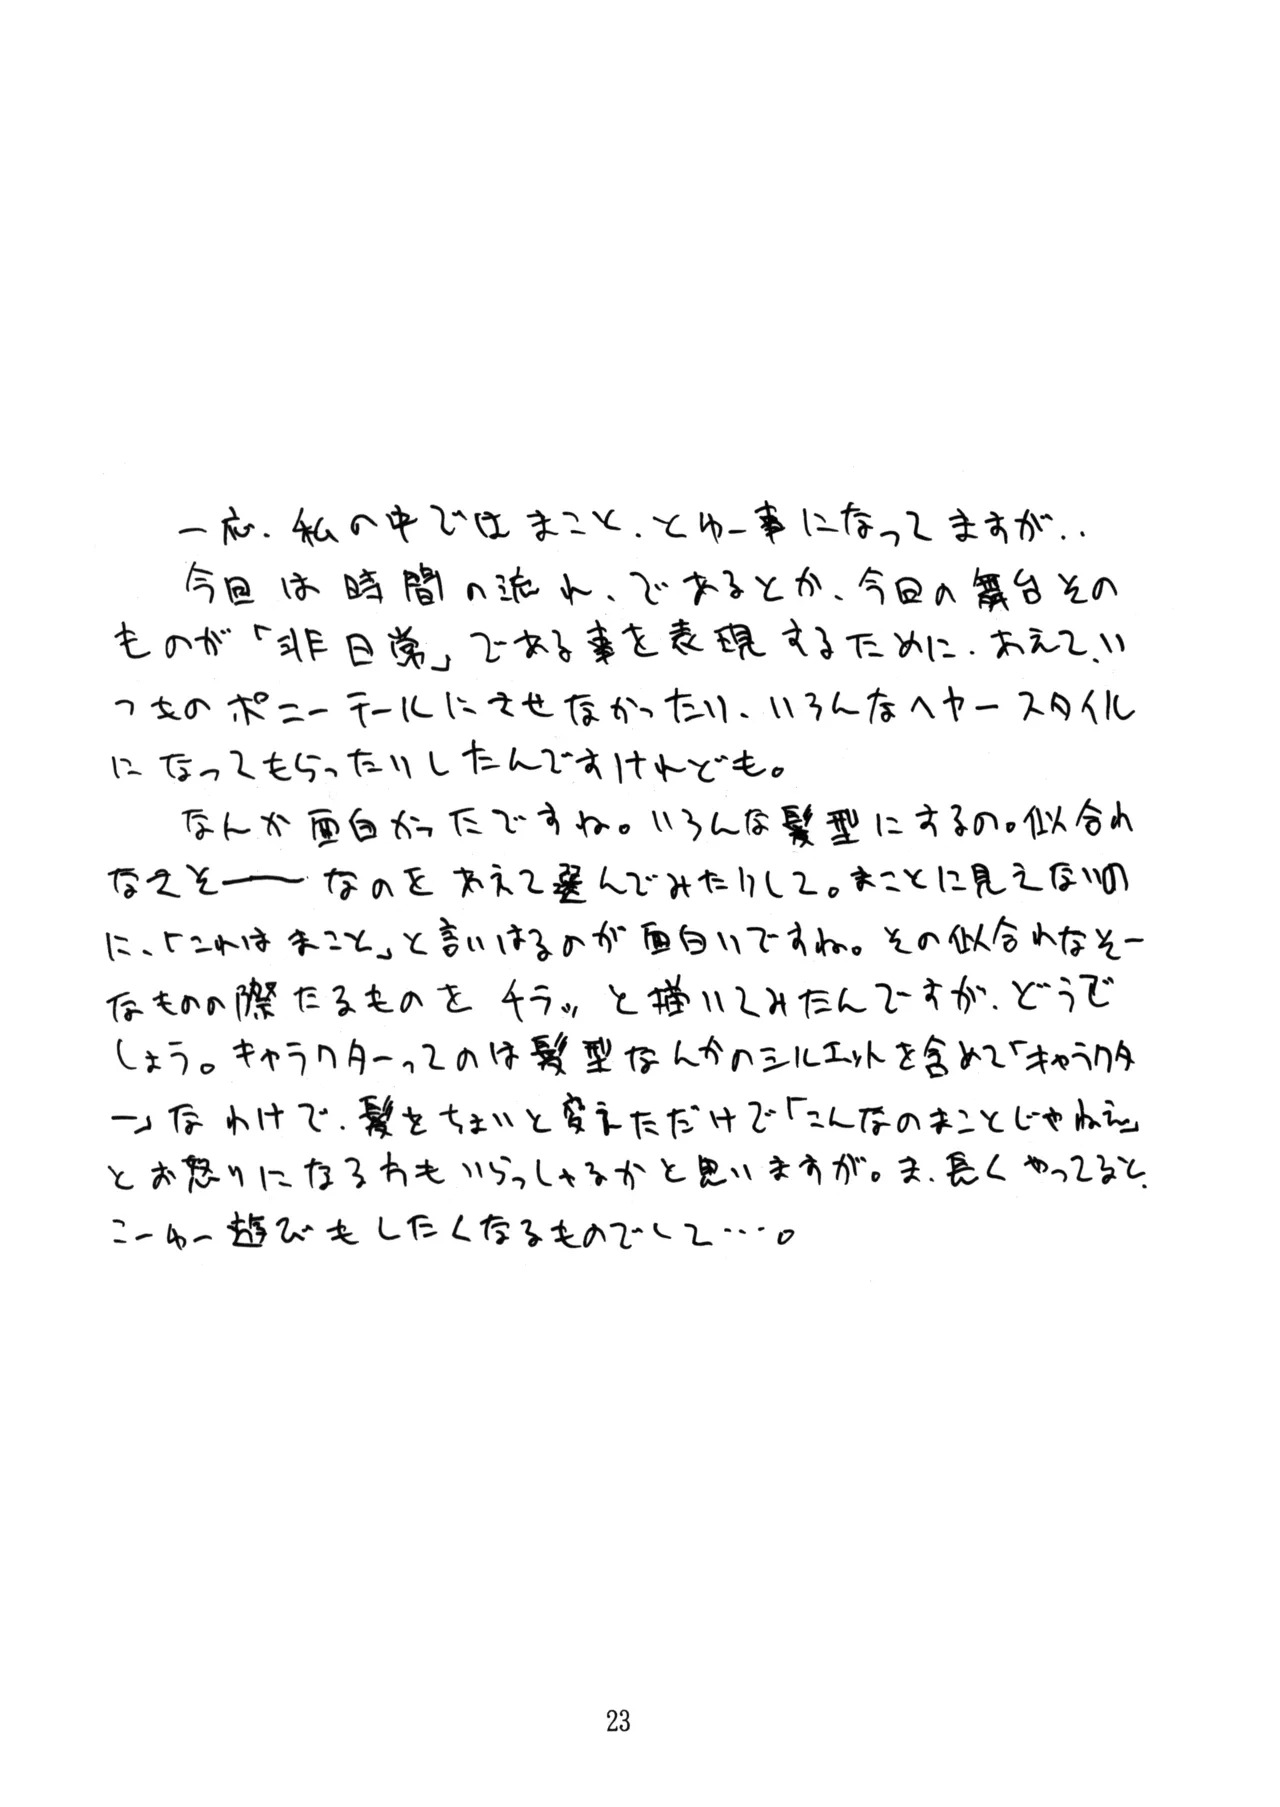 一応、私の中ではまこと、とゆー事になってますが..
今回は時間の流れ、であるとか、今回の舞台その
ものが「非日常」である事を表現するために、あえて、い
つものポニーテールにさせなかったり、いろんなヘヤースタイル
になってもらったりしたんですけれども。
なんか面白かったですね。いろんな髪型にするの。似合わ
なさそーーなのをあえて選んでみたりして。まことに見えないの
に、「これはまこと」と言いはるのが面白いですね。その似合わなそー
なものの際たるものをチラッと描いてみたんですが、どうで
しょう。キャラクターってのは髪型なんかのシルエットを含めて「キャラクタ
ー」なわけで、髪をちょいと変えただけで「こんなのまことじゃねえ」
とお怒りになる方もいらっしゃるかと思いますが。ま、長くやってると、
こーゆー遊びもしたくなるものでして…。
23